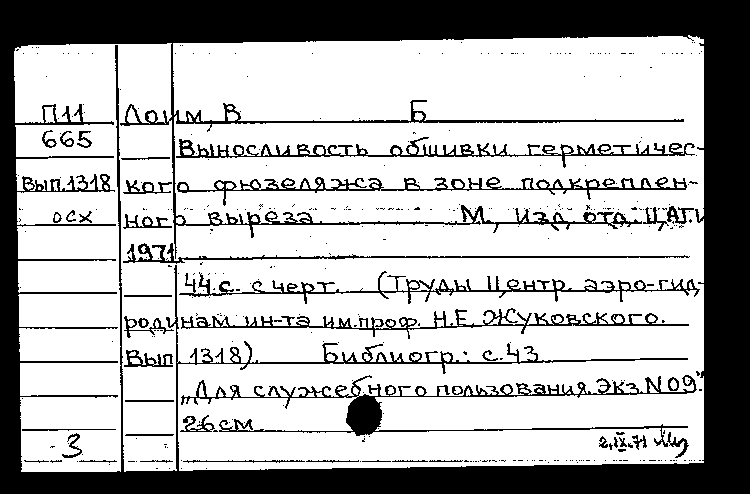 П11 Лоим, В Б
665
Выносливость обшивки герметичес-
Вып.1318 кого фюзеляжа в зоне подкреплен-
осх ного выреза. М., изд. отд. ЦАГИ
1971.
44 с. с черт. (Труды Центр. аэро-гид-
родинам. ин-та им. проф. Н.Е. Жуковского.
Вып. 1318). Библиогр.: с. 43
„Для служебного пользования. Экз. N 09."
26 см
3 2.IX.71